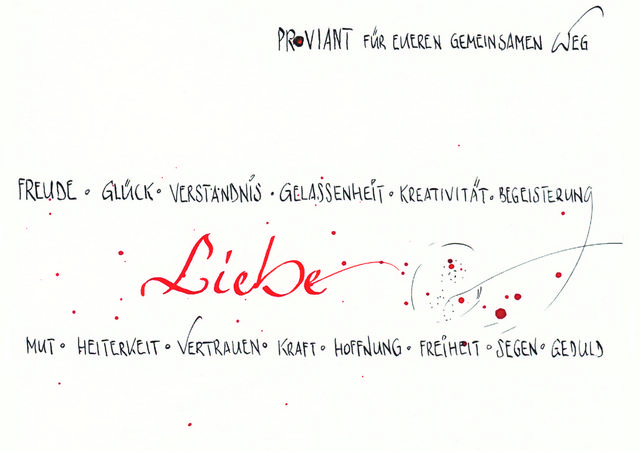 PROVIANT FÜR EUEREN GEMEINSAMEN WEG
FREUDE • GLÜCK • VERSTÄNDNIS • GELASSENHEIT • KREATIVITÄT • BEGEISTERUNG
Liebe
MUT • HEITERKEIT • VERTRAUEN • KRAFT • HOFFNUNG • FREIHEIT • SEGEN • GEDULD